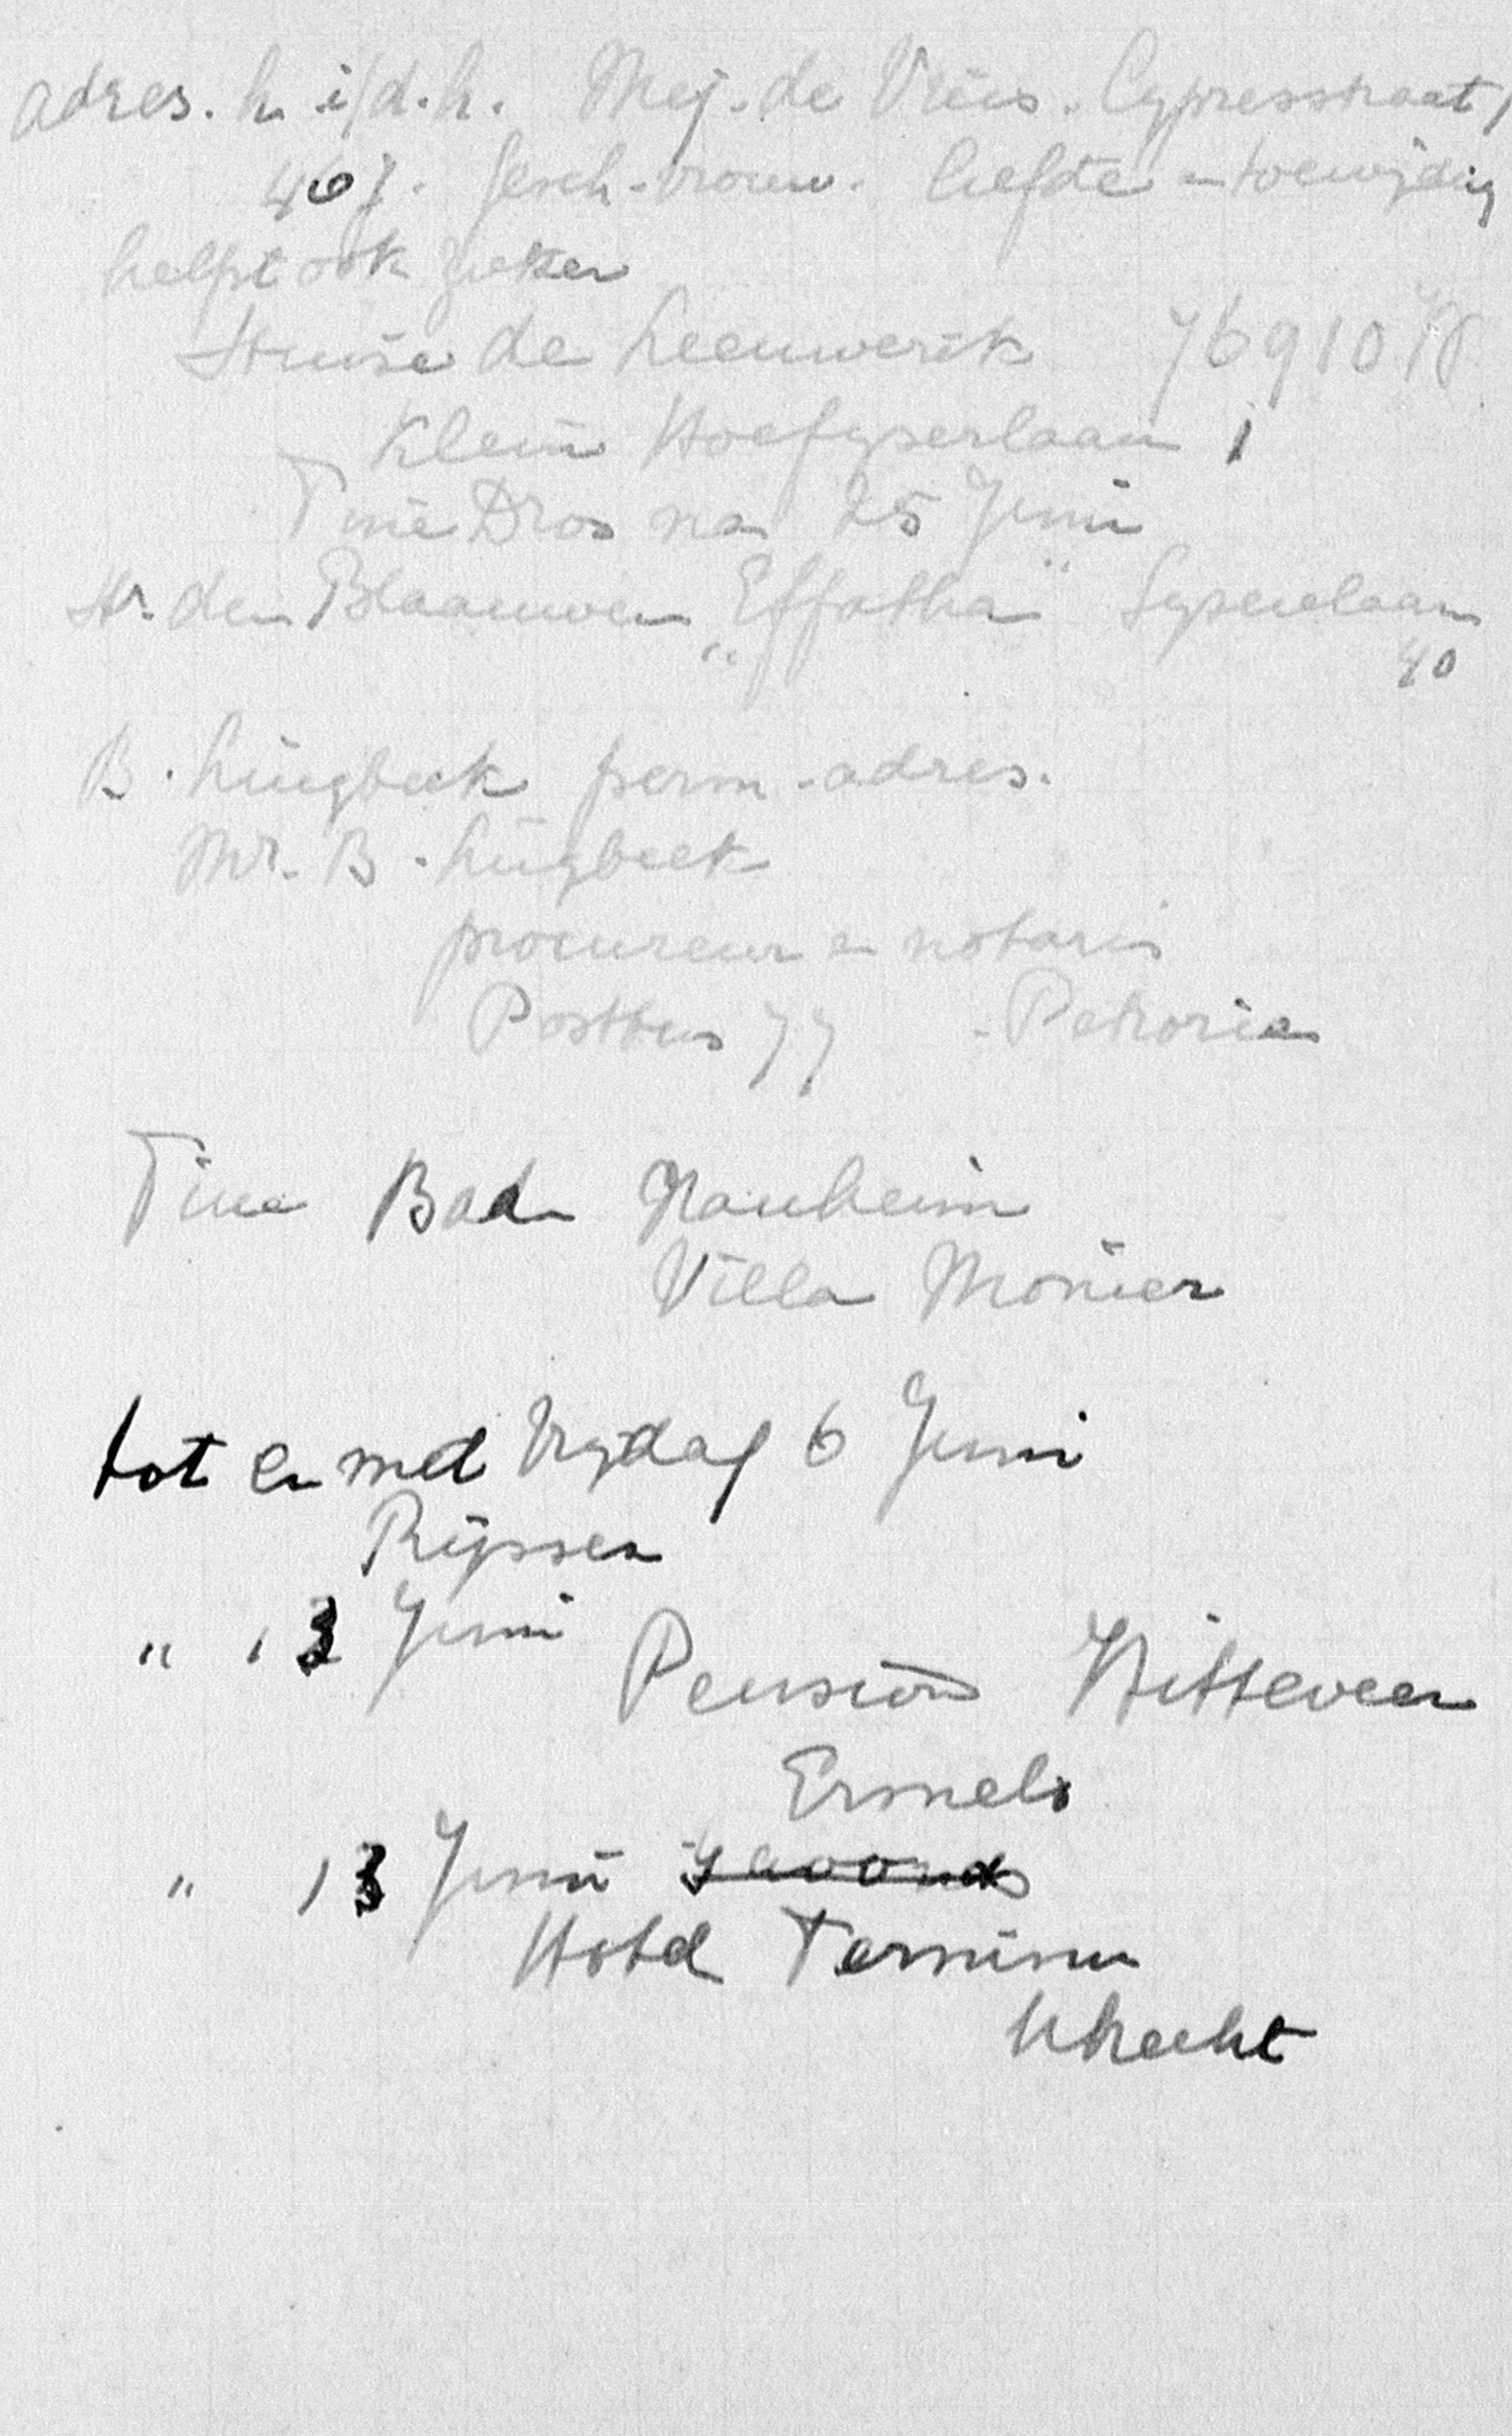 adres. h. i/d. h. Mej. de Vries. Cypresstraat
467. gesch. vrouw. liefde en toewijding
helpt ook zieken
Huize de Leeuwerik 769108
Klein Hoefijzerlaan 1
Tine Dros na 25 Juni
Hr. den Blaauwen „Effatha" Sypenlaan
40
B. Lingbeek perm. adres.
Mr. B. Lingbeek
procureur en notaris
Postbus 77 - Petroria
Tine Bad Nauheim
Villa Monier
tot en met Vrijdag 6 Juni
Rijssen
" 13 Juni
Pension Witteveen
Ermelo
" 13 Juni 's avonds
Hotel Terminus
Utrecht